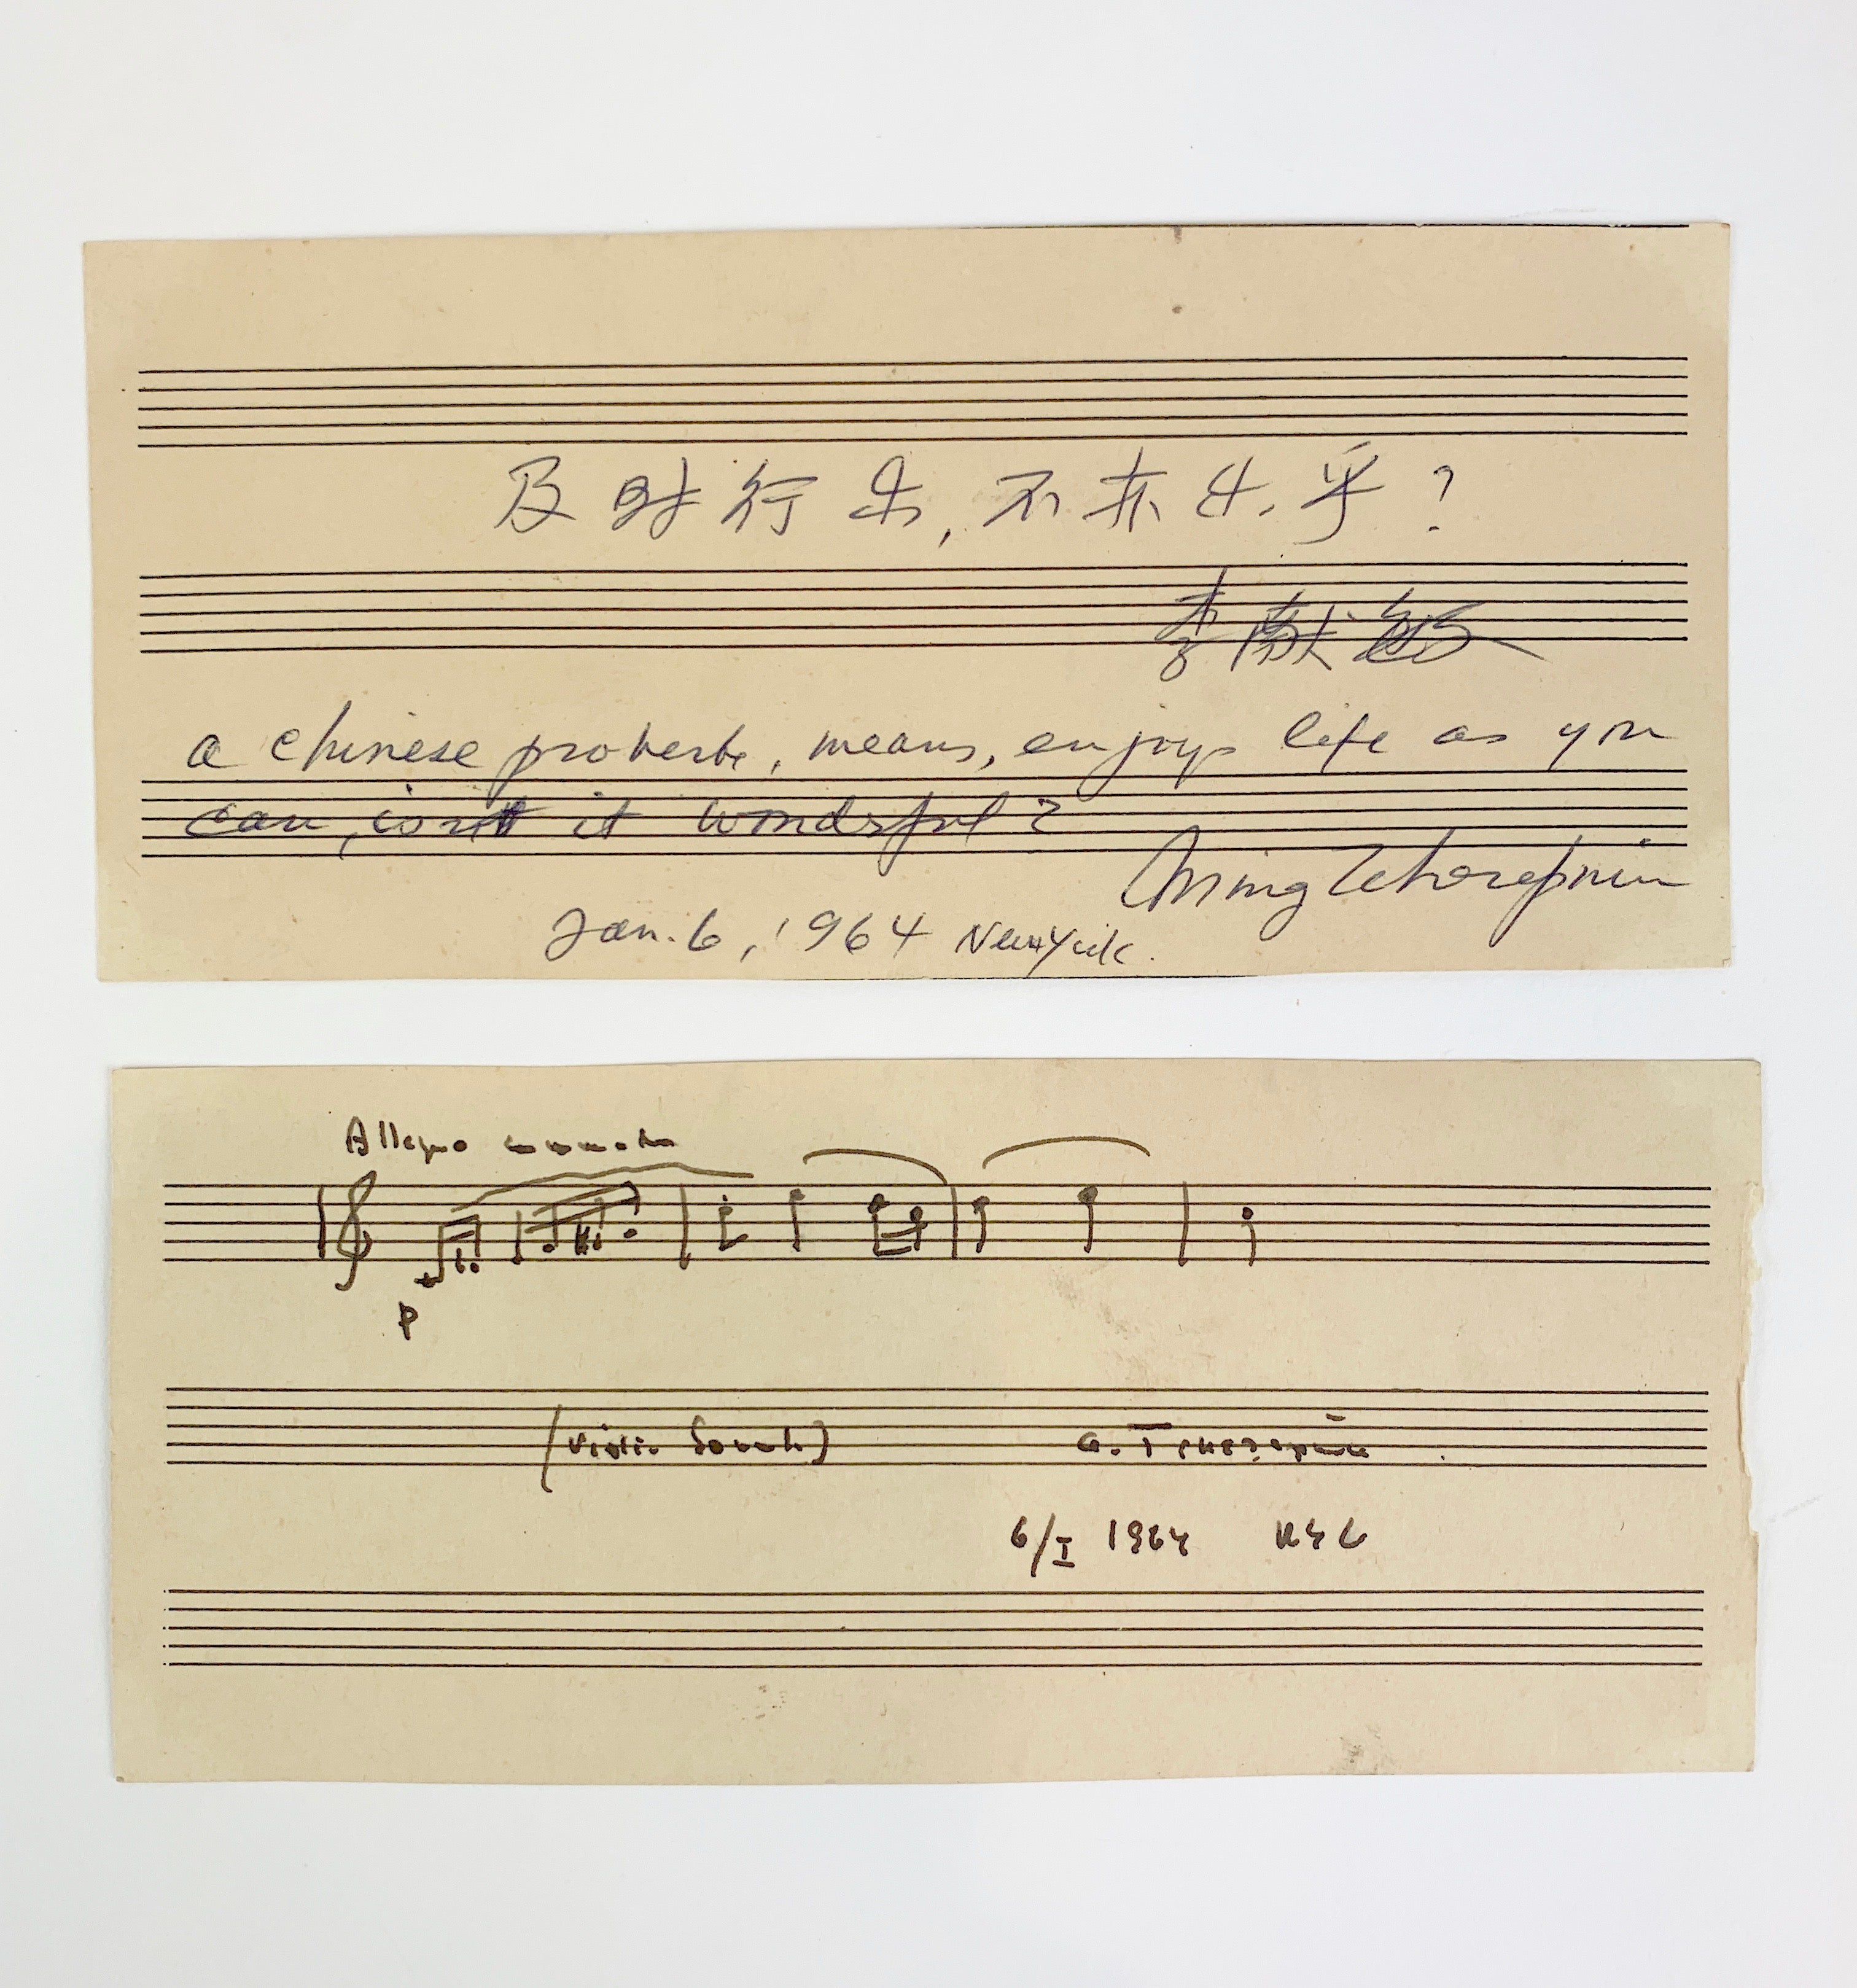 及时行乐,不亦乐乎?
李献敏
a chinese proverbe, means, enjoys life as you
can, isn't it wonderful?
Ming Tcherepnin
Jan. 6, 1964 New York.
Allegro commodo
p
(Violin Sonata)
6/I 1964 NYC